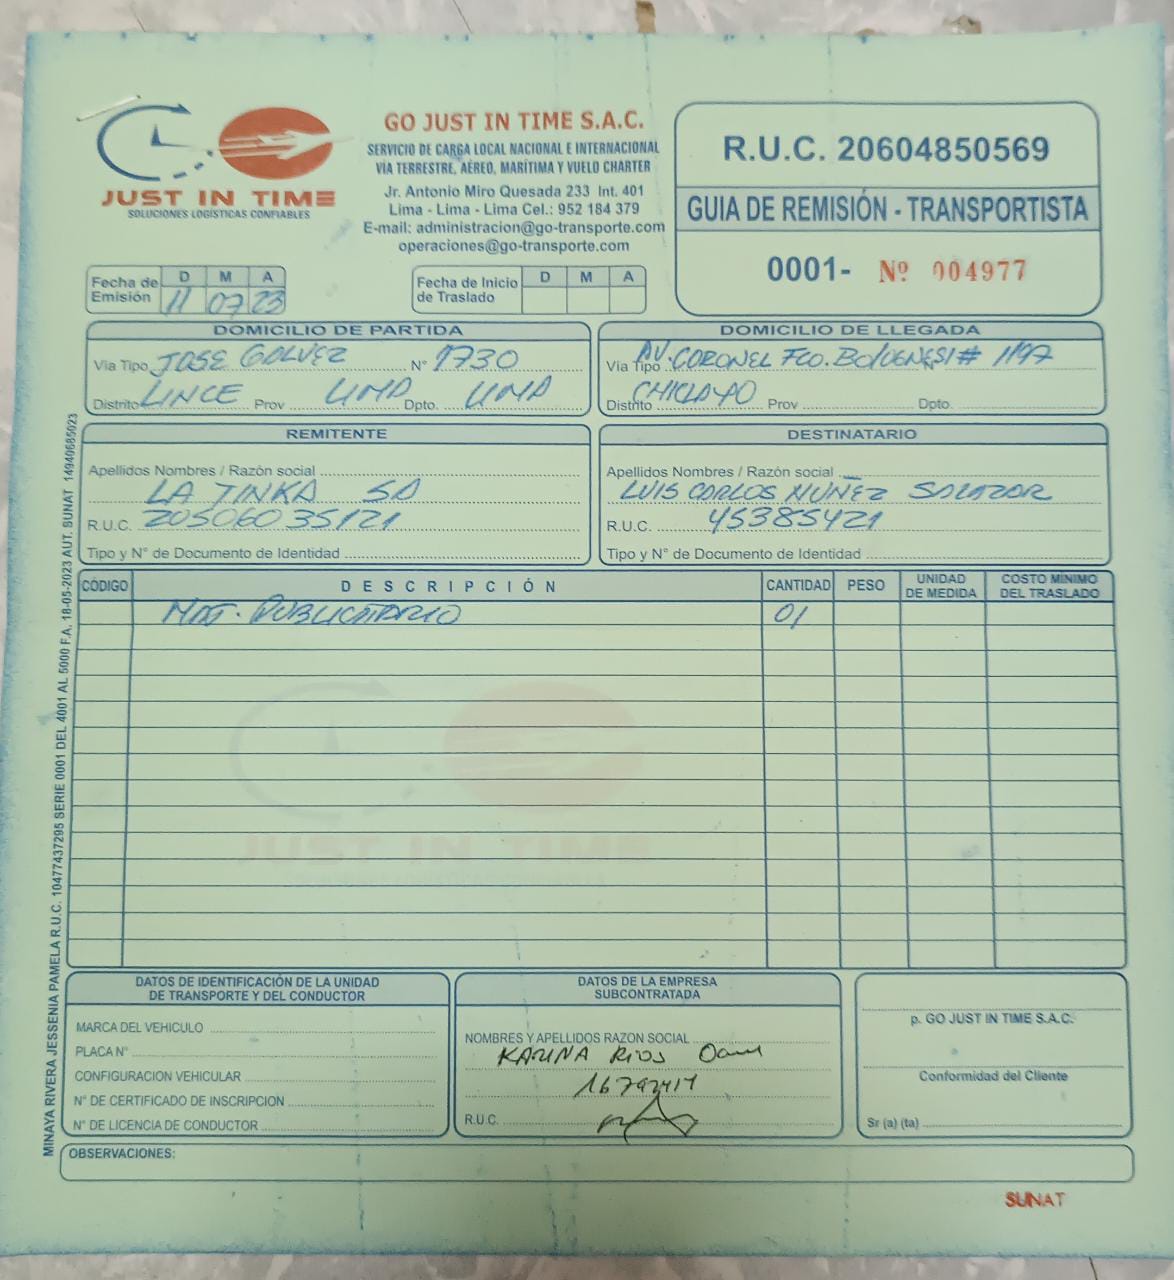 JUST IN TIME
SOLUCIONES LOGÍSTICAS CONFIABLES
GO JUST IN TIME S.A.C.
SERVICIO DE CARGA LOCAL NACIONAL E INTERNACIONAL
VÍA TERRESTRE, AÉREO, MARÍTIMA Y VUELO CHARTER
Jr. Antonio Miro Quesada 233 Int. 401
Lima - Lima - Lima Cel.: 952 184 379
E-mail: administracion@go-transporte.com
operaciones@go-transporte.com
R.U.C. 20604850569
GUIA DE REMISIÓN - TRANSPORTISTA
0001- Nº 004977
Fecha de Emisión D M A
11 07 23
Fecha de Inicio de Traslado D M A
DOMICILIO DE PARTIDA
Via Tipo JOSE GALVEZ N° 1730
Distrito LINCE Prov LIMA Dpto. LIMA
DOMICILIO DE LLEGADA
Via Tipo AV. CORONEL FCO. BOLOGNESI # 1197
Distrito CHICLAYO Prov Dpto.
REMITENTE
Apellidos Nombres / Razón social
LA TINKA SA
R.U.C. 20506035121
Tipo y N° de Documento de Identidad
DESTINATARIO
Apellidos Nombres / Razón social
LUIS CARLOS NUÑEZ SALAZAR
R.U.C. 45385421
Tipo y N° de Documento de Identidad
CÓDIGO DESCRIPCIÓN CANTIDAD PESO UNIDAD DE MEDIDA COSTO MÍNIMO DEL TRASLADO
MAT. PUBLICITARIO 01
JUST IN TIME
DATOS DE IDENTIFICACIÓN DE LA UNIDAD
DE TRANSPORTE Y DEL CONDUCTOR
MARCA DEL VEHICULO
PLACA N°
CONFIGURACION VEHICULAR
N° DE CERTIFICADO DE INSCRIPCION
N° DE LICENCIA DE CONDUCTOR
DATOS DE LA EMPRESA
SUBCONTRATADA
NOMBRES Y APELLIDOS RAZON SOCIAL
KARINA RIOS
R.U.C.
p. GO JUST IN TIME S.A.C.
Conformidad del Cliente
Sr (a) (ta)
OBSERVACIONES:
SUNAT
MINAYA RIVERA JESSENIA PAMELA R.U.C. 10477437295 SERIE 0001 DEL 4001 AL 5000 F.A. 18-05-2023 AUT. SUNAT 14940685023